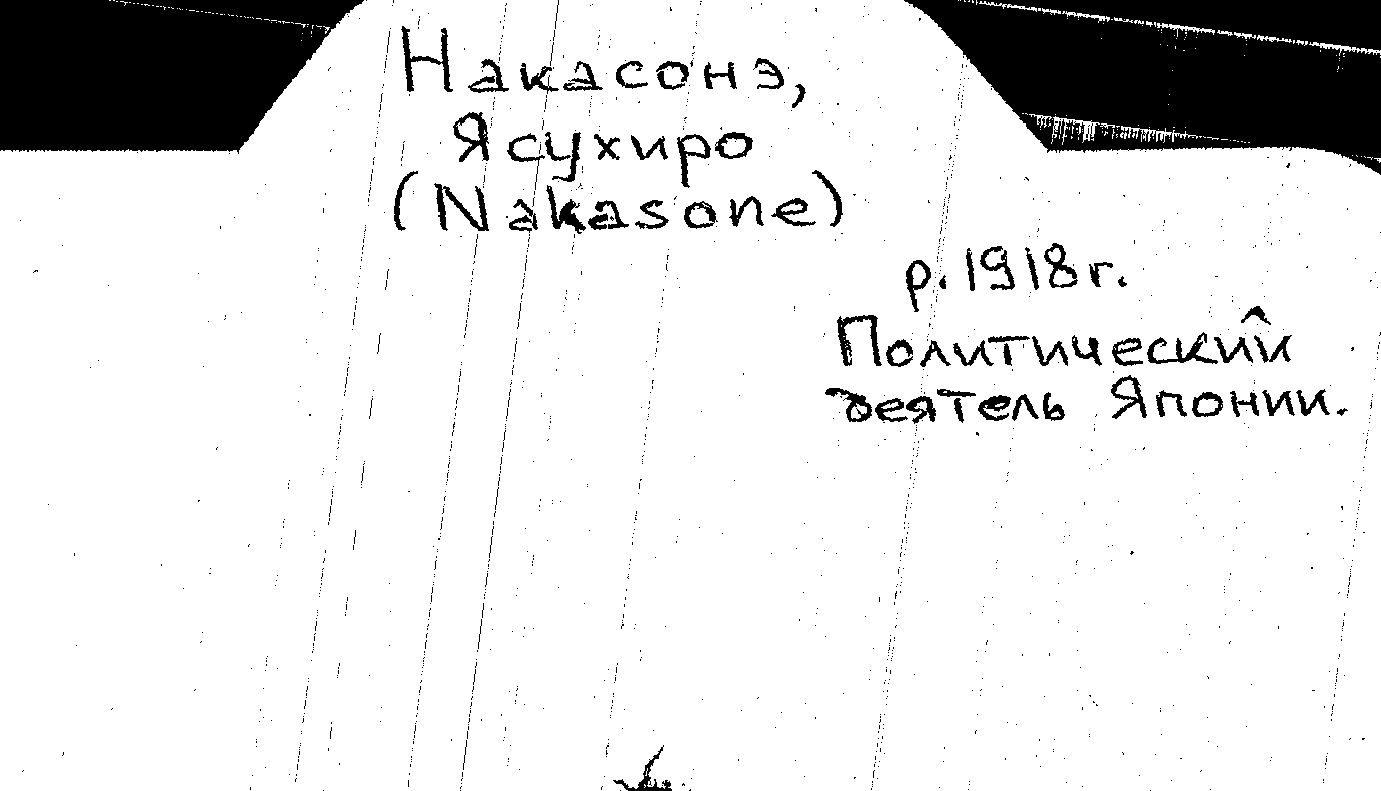 Накасонэ,
Ясухиро
(Nakasone)
р. 1918 г.
Политический
деятель Японии.